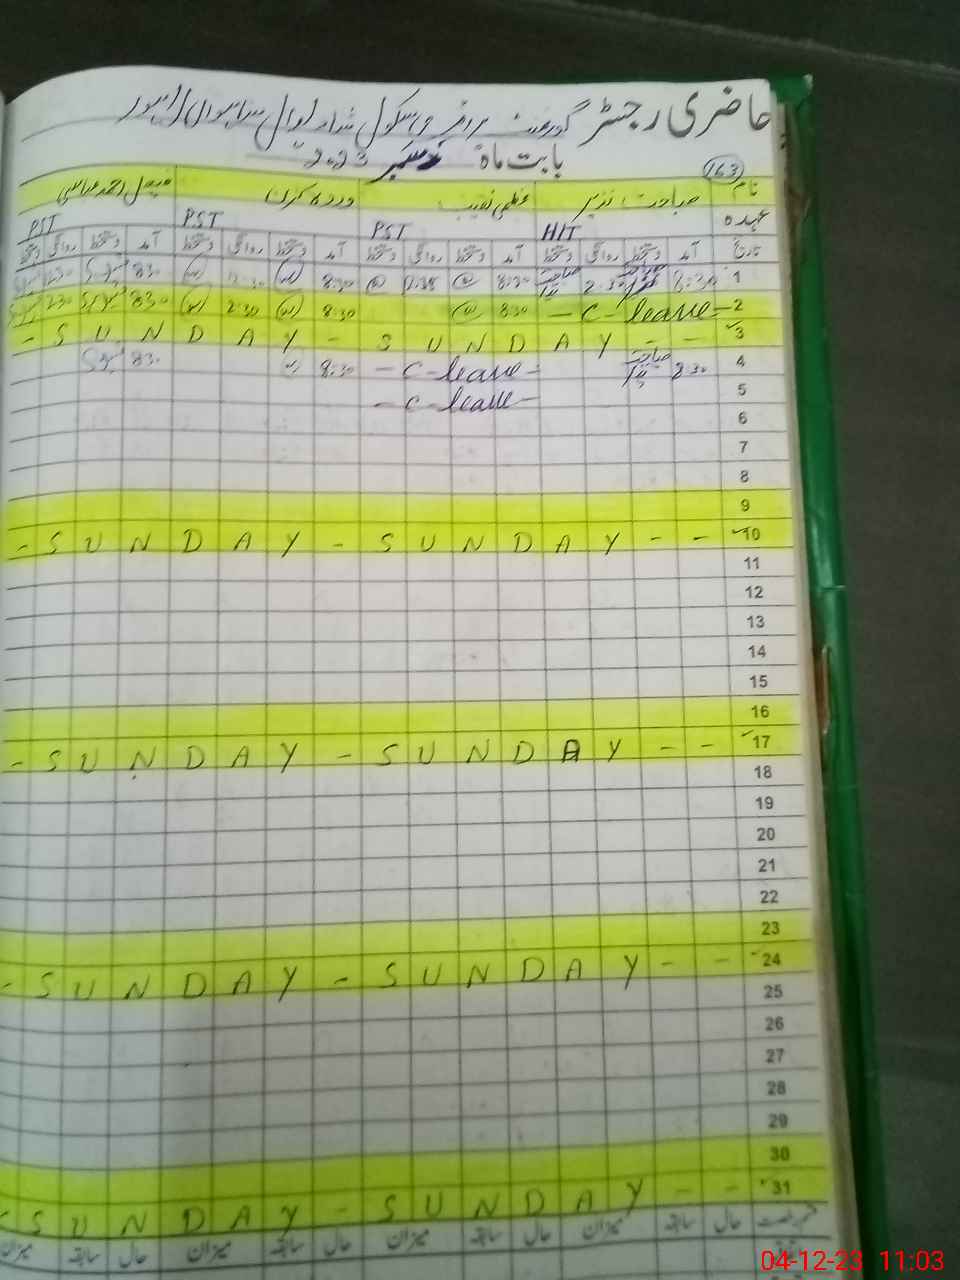 حاضری رجسٹر گورنمنٹ
بابت ماہ دسمبر 2023
163
نام صباحت نذیر عظمیٰ نصیب وردہ کرن فیصل احمد عباسی
عہدہ HIT PST PST PST
تاریخ آمد دستخط روانگی دستخط آمد دستخط روانگی دستخط آمد دستخط روانگی دستخط آمد دستخط روانگی دستخط
1 8:30 8:30 8:30 8:30
2 - C - leave - 8:30 8:30 2:30 8:30 2:30
3 - S U N D A Y - S U N D A Y - -
4 8:30 - C - leave - 8:30 8:30
5 - C - leave -
6
7
8
9
10 - S U N D A Y - S U N D A Y - -
11
12
13
14
15
16
17 - S U N D A Y - S U N D A Y - -
18
19
20
21
22
23
24 - S U N D A Y - S U N D A Y - -
25
26
27
28
29
30
31 - S U N D A Y - S U N D A Y - -
حال سابقہ میزان حال سابقہ میزان حال سابقہ میزان حال سابقہ میزان
04-12-23 11:03